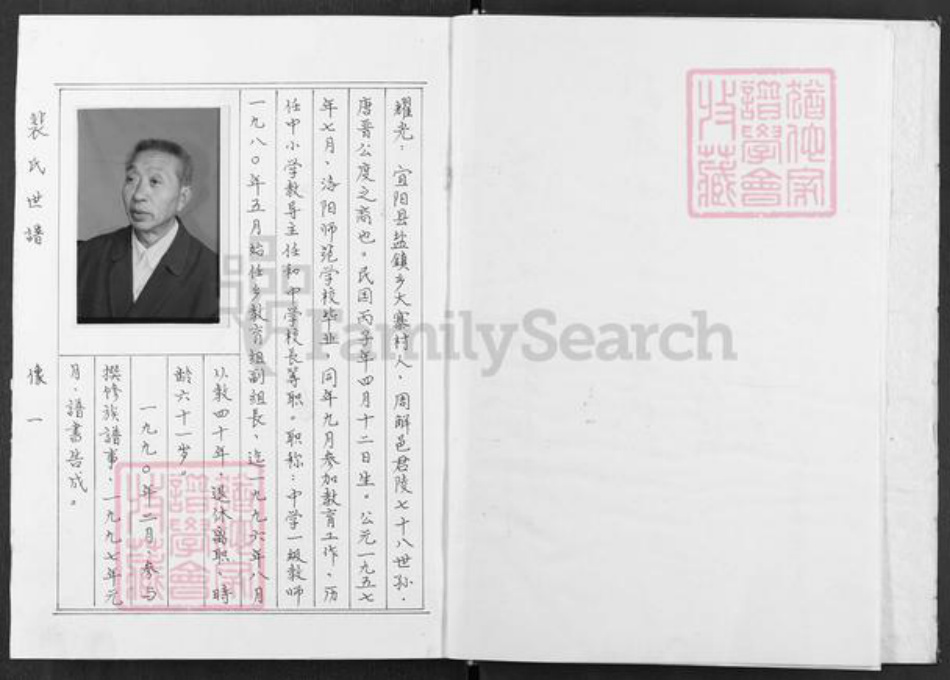 裴氏世譜
像一
耀光：宜阳县盐鎮乡大寨村人，周解邑君陵七十八世孙，
唐晋公度之裔也。民国丙子年四月十二日生。公元一九五七
年七月，洛阳师范学校毕业，同年九月参加教育工作，历
任中小学教导主任初中学校長等职。职称：中学一级教师
一九八〇年五月始任乡教育组副组長，迄一九九六年八月
以教四十年，退休离职，時
龄六十一岁。
一九九〇年二月，参与
撰修族譜事，一九九七年元
月，譜書告成。
FamilySearch
譜學會
收藏
譜學會
收藏